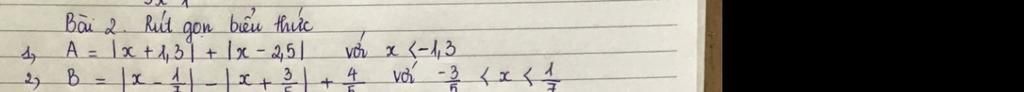 Bài 2. Rút gọn biểu thức
1, A = |x + 1,3| + |x - 2,5| với x < -1,3
2, B = |x - 1/7| - |x + 3/5| + 4/5 với -3/5 < x < 1/7